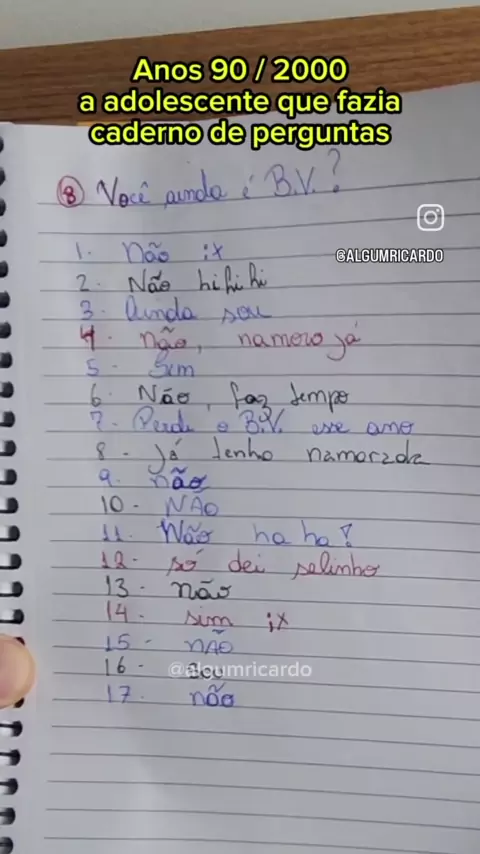 Anos 90 / 2000
a adolescente que fazia
caderno de perguntas
8 Você ainda é B.V.?
@ALGUMRICARDO
1. Não ;x
2. Não hihihi
3. Ainda sou
4. não, namoro já
5 - Sim
6. Não, faz tempo
7 - Perdi o B.V. esse ano
8 - Já tenho namorada
9. não
10 - NÃO
11. Não ha ha!
12 - só dei selinho
13 - não
14. sim ;x
15 - NÃO
16 - sou
@algumricardo
17. não